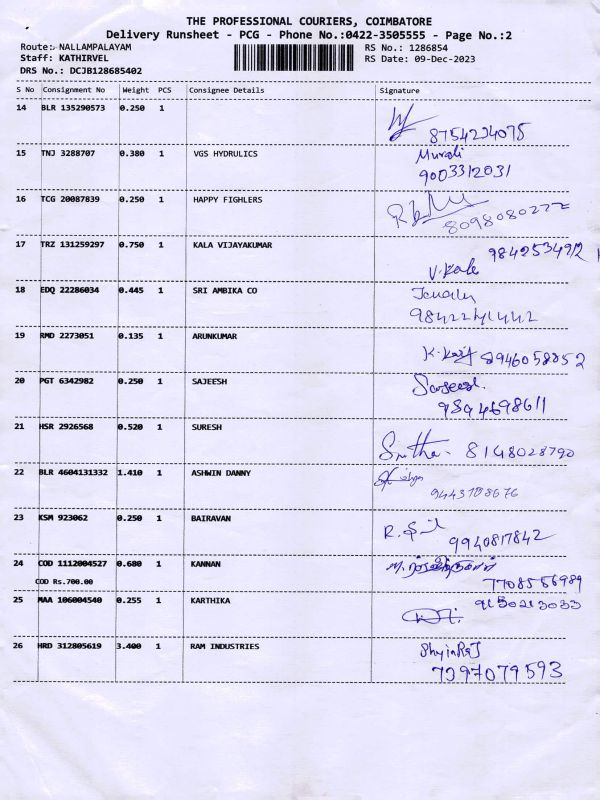 THE PROFESSIONAL COURIERS, COIMBATORE
Delivery Runsheet - PCG - Phone No.:0422-3505555 - Page No.:2
Route:- NALLAMPALAYAM RS No.: 1286854
Staff: KATHIRVEL RS Date: 09-Dec-2023
DRS No.: DCJB128685402
S No Consignment No Weight PCS Consignee Details Signature
14 BLR 135290573 0.250 1
8754234075
15 TNJ 3288707 0.380 1 VGS HYDRULICS Murali
9003312031
16 TCG 20087839 0.250 1 HAPPY FIGHLERS
8098080272
17 TRZ 131259297 0.750 1 KALA VIJAYAKUMAR 9842534912
V. Kala
18 EDQ 22286034 0.445 1 SRI AMBIKA CO
9842241442
19 RMD 2273051 0.135 1 ARUNKUMAR
8946058852
20 PGT 6342982 0.250 1 SAJEESH Sajeesh
9894698611
21 HSR 2926568 0.520 1 SURESH
8148028790
22 BLR 4604131332 1.410 1 ASHWIN DANNY
23 KSM 923062 0.250 1 BAIRAVAN
9940817842
24 COD 1112004527 0.680 1 KANNAN
COD Rs.700.00 7708556989
25 MAA 106004540 0.255 1 KARTHIKA 9150213033
26 HRD 312805619 3.400 1 RAM INDUSTRIES
7397079593